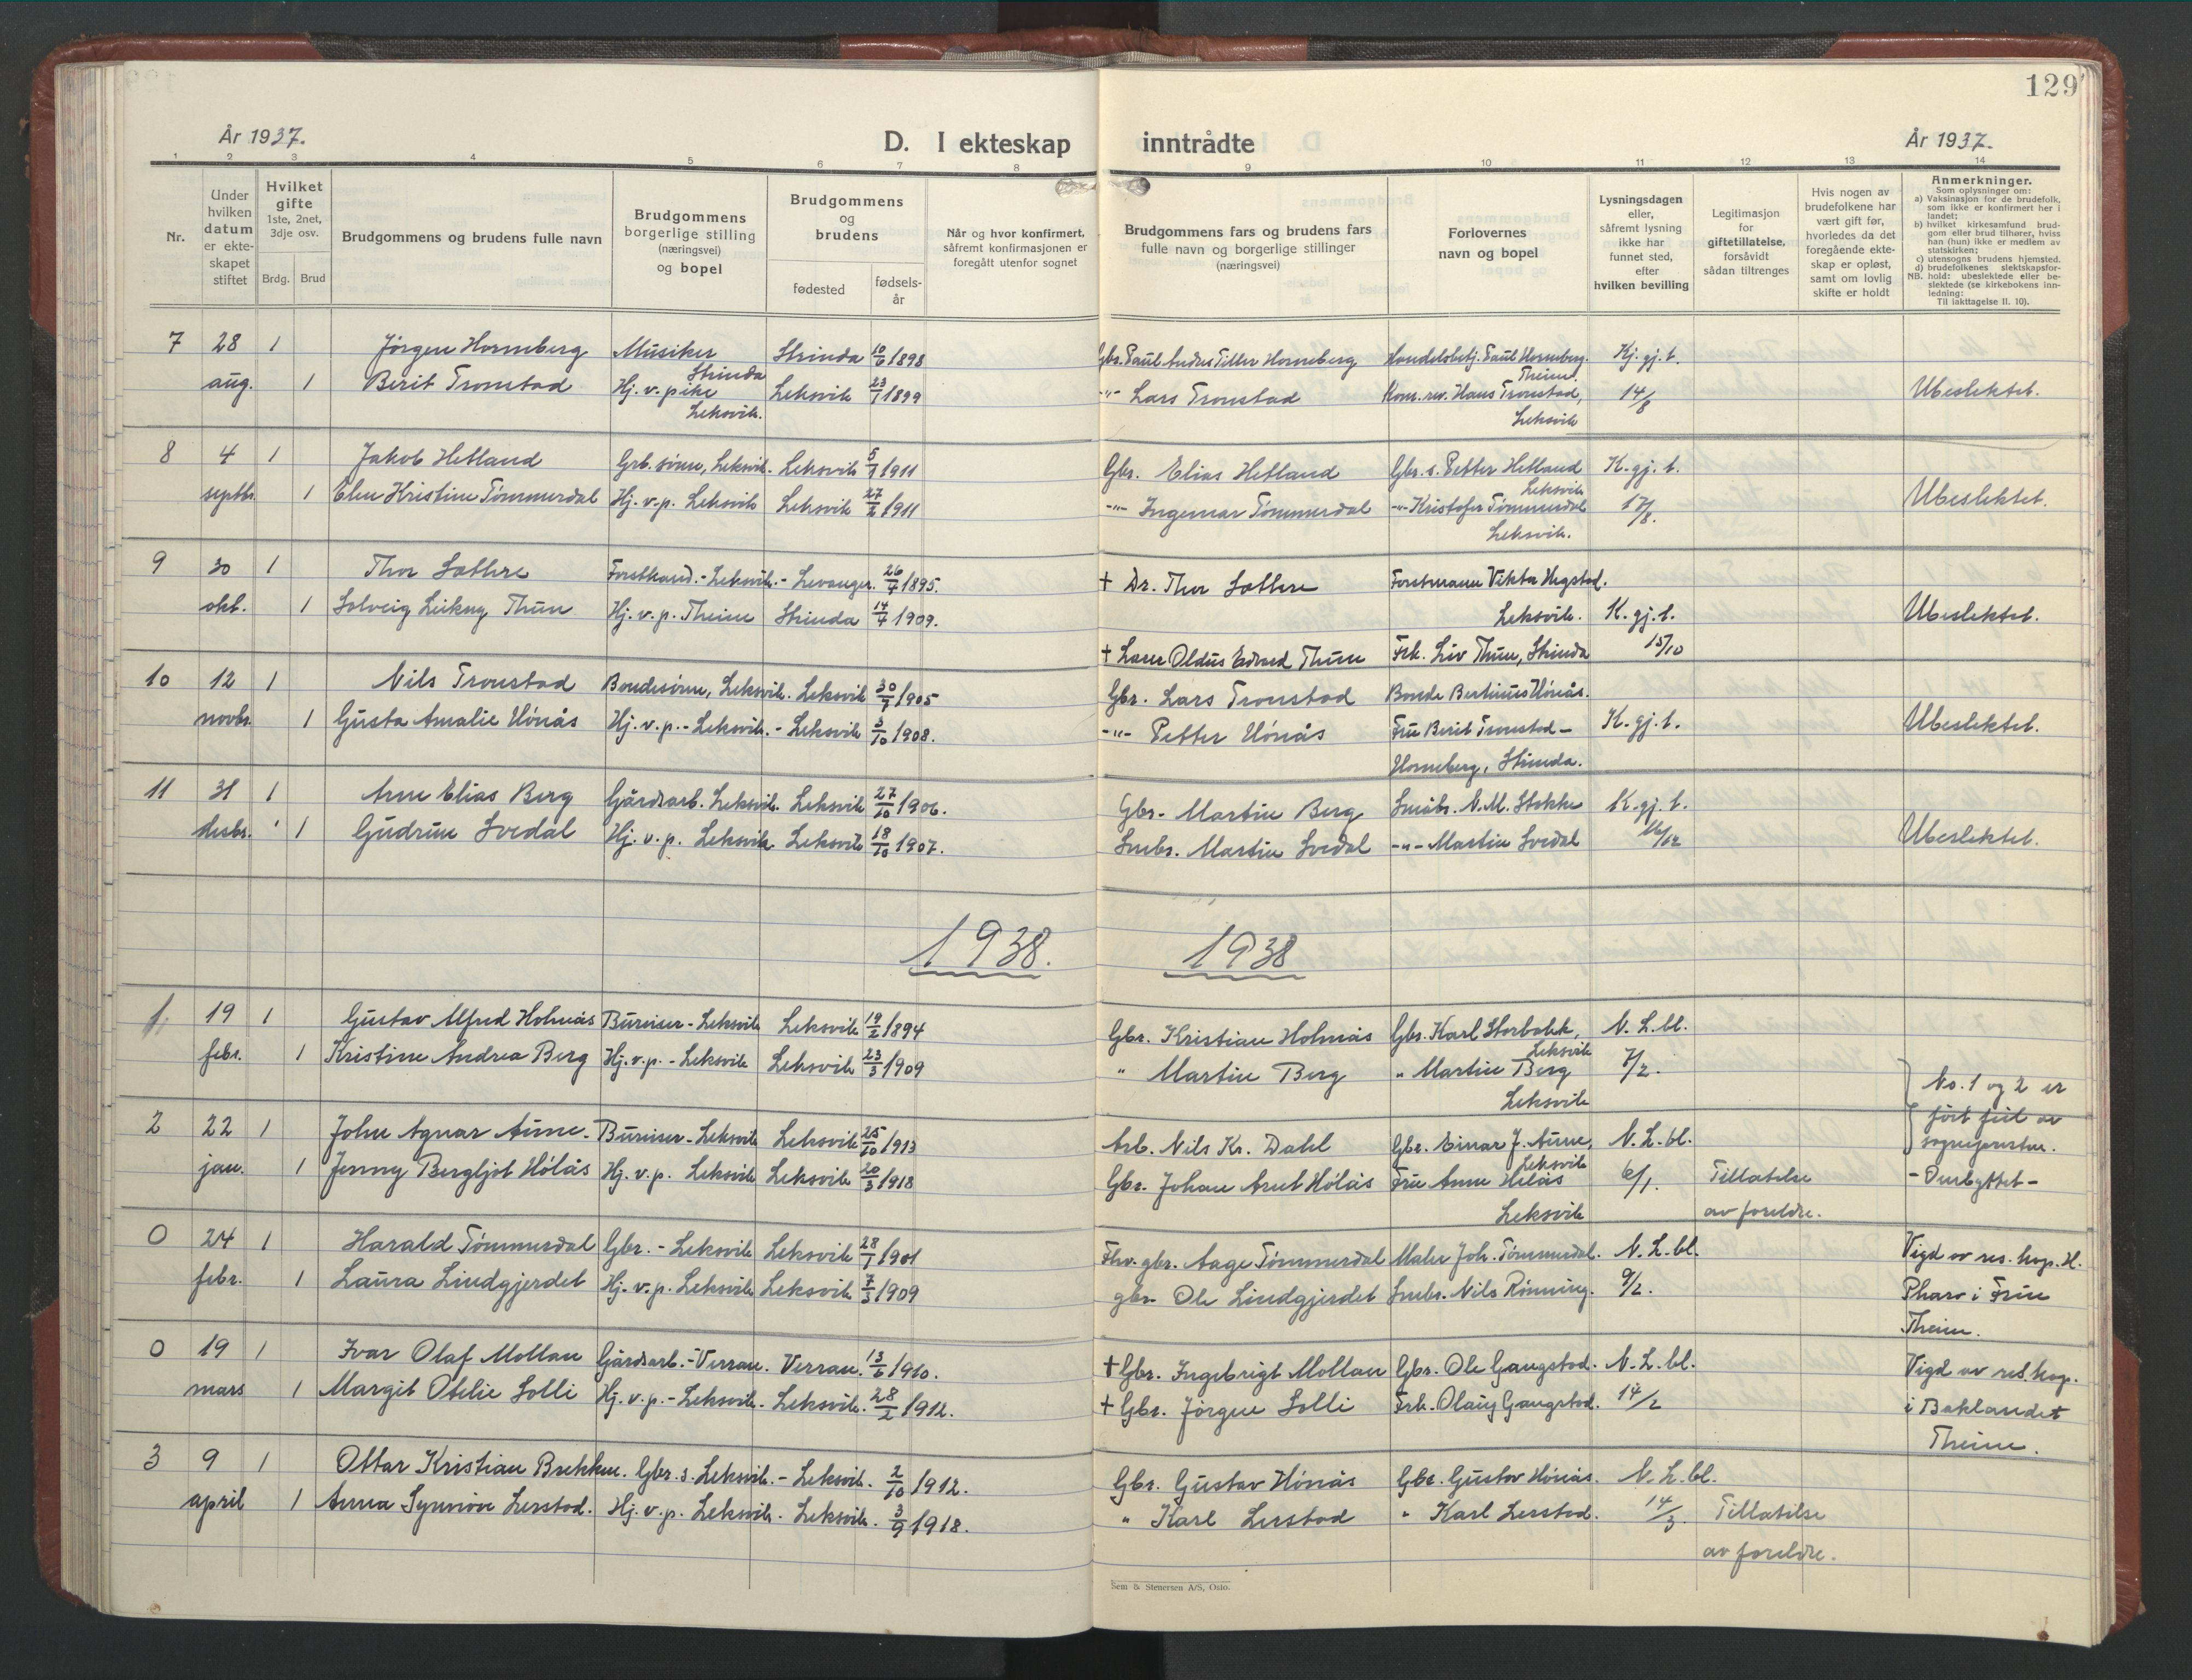 129
År 1937.
D. I ekteskap inntrådte
År 1937.
1 2 3 4 5 6 7 8 9 10 11 12 13 14
Nr.
Under hvilken datum er ekte-skapet stiftet
Hvilket gifte 1ste, 2net, 3dje osv.
Brdg. Brud
Brudgommens og brudens fulle navn
Brudgommens borgerlige stilling (næringsvei) og bopel
Brudgommens og brudens
fødested
fødsels-år
Når og hvor konfirmert, såfremt konfirmasjonen er foregått utenfor sognet
Brudgommens fars og brudens fars fulle navn og borgerlige stillinger (næringsvei)
Forlovernes navn og bopel
Lysningsdagen eller, såfremt lysning ikke har funnet sted, efter hvilken bevilling
Legitimasjon for giftetillatelse, forsåvidt sådan tiltrenges
Hvis nogen av brudefolkene har vært gift før, hvorledes da det foregående ekte-skap er opløst, samt om lovlig skifte er holdt
Anmerkninger.
Som oplysninger om:
a) Vaksinasjon for de brudefolk, som ikke er konfirmert her i landet;
b) hvilket kirkesamfund brud-gom eller brud tilhører, hviss han (hun) ikke er medlem av statskirken;
c) utensogns brudens hjemsted.
d) brudefolkenes slektskapsfor-hold: ubeslektede eller be-slektede (se kirkebokens inn-ledning:
NB.
Til iakttagelse II. 10).
7 28 1 Jörgen Horneberg Musiker Strinda 10/6 1898 Gbr. Paul Andres Tiller Horneberg Handelsbetj. Paul Horneberg. Kj. gj. t.
Strinda Theim.
aug. 1 Berit Tronstad Hj. v. pike Leksvik 23/1 1899 -"- Lars Tronstad Kom. rev. Hans Tronstad, 14/8 Ubeslektet.
Leksvik. Leksvik
8 4 1 Jakob Hetland Grb. sönn, Leksvik. Leksvik 5/7 1911 Gbr. Elias Hetland Gbr. s. Petter Hetland K. gj. t.
Leksvik
septbr. 1 Elen Kristine Tömmerdal Hj. v. p. Leksvik Leksvik 27/2 1911 -"- Ingemar Tömmerdal -"- Kristofer Tömmerdal 17/8. Ubeslektet.
Leksvik.
9 30 1 Thor Sæthre Forstkand. - Leksvik. - Levanger. 26/4 1895. † Dr. Thor Sæthre Forstmann Viktor Hegstad.
okt. 1 Solveig Leikny Thun Hj. v. p. Theim Strinda 14/4 1909. Leksvik. K. gj. t. Ubeslektet.
† Lars Oldus Edvard Thun Frk. Liv Thun, Strinda 15/10
10 12 1 Nils Tronstad Bondesönn, Leksvik. Leksvik 30/9 1905 Gbr. Lars Tronstad Bonde Bertinus Hönås.
novbr. 1 Gusta Amalie Hönås Hj. v. p. - Leksvik. - Leksvik 5/10 1908. -"- Petter Hönås Fru Berit Tronstad - K. gj. t. Ubeslektet.
Horneberg, Strinda.
11 31 1 Arne Elias Berg Gårdsarb. Leksvik. Leksvik 27/10 1906. Gbr. Martin Berg Småbr. N. M. Stokke K. gj. t.
desbr. 1 Gudrun Svedal Hj. v. p. Leksvik Leksvik 18/10 1907. Smbr. Martin Svedal -"- Martin Svedal 16/12 Ubeslektet.
1938. 1938
1 19 1 Gustav Alfred Holmås Bureiser - Leksvik Leksvik 19/2 1894 Gbr. Kristian Holmås Gbr. Karl Storbakk, N. L. bl.
Leksvik
febr. 1 Kristine Andrea Berg Hj. v. p. - Leksvik Leksvik 23/3 1909 " Martin Berg " Martin Berg 7/2.
Leksvik
No. 1 og 2 er
fört feil av
sognepresten.
- Ombyttet -
2 22 1 John Agnar Aune. Bureiser - Leksvik Leksvik 25/10 1913 Arb. Nils Kr. Dahl Gbr. Einar J. Aune, N. L. bl.
Leksvik
jan. 1 Jenny Bergljot Hólås Hj. v. p. Leksvik Leksvik 20/3 1918 Gbr. Johan Arnt Hólås Fru Anne Hólås 6/1. Tillatelse
Leksvik av foreldre.
0 24 1 Harald Tömmerdal Gbr. - Leksvik Leksvik 28/1 1901 Fhv. gbr. Aage Tömmerdal Maler Joh. Tömmerdal. N. L. bl. Vigd av res. kap. H.
febr. 1 Laura Lindgjerdet Hj. v. p. Leksvik Leksvik 7/3 1909 gbr. Ole Lindgjerdet Smbr. Nils Rönning. 9/2. Pharo i Frue
Theim.
0 19 1 Ivar Olaf Mollan Gårdsarb. - Verran. Verran. 13/6 1910. † Gbr. Ingebrigt Mollan Gbr. Ole Gangstad. N. L. bl. Vigd av res. kap.
mars 1 Margit Otelie Solli Hj. v. p. - Leksvik. - Leksvik. 28/2 1912. † Gbr. Jörgen Solli Frk. Olaug Gangstad. 14/2 i Baklandet
Theim.
3 9 1 Ottar Kristian Brekken. Gbr. s. Leksvik. - Leksvik. 2/10 1912. Gbr. Gustav Hönås Gbr. Gustav Hönås. N. L. bl.
april 1 Anna Synnöve Lerstad. Hj. v. p. Leksvik. Leksvik. 3/9 1918. " Karl Lerstad " Karl Lerstad. 14/3. Tillatelse
av foreldre.
Sem & Stenersen A/S, Oslo.